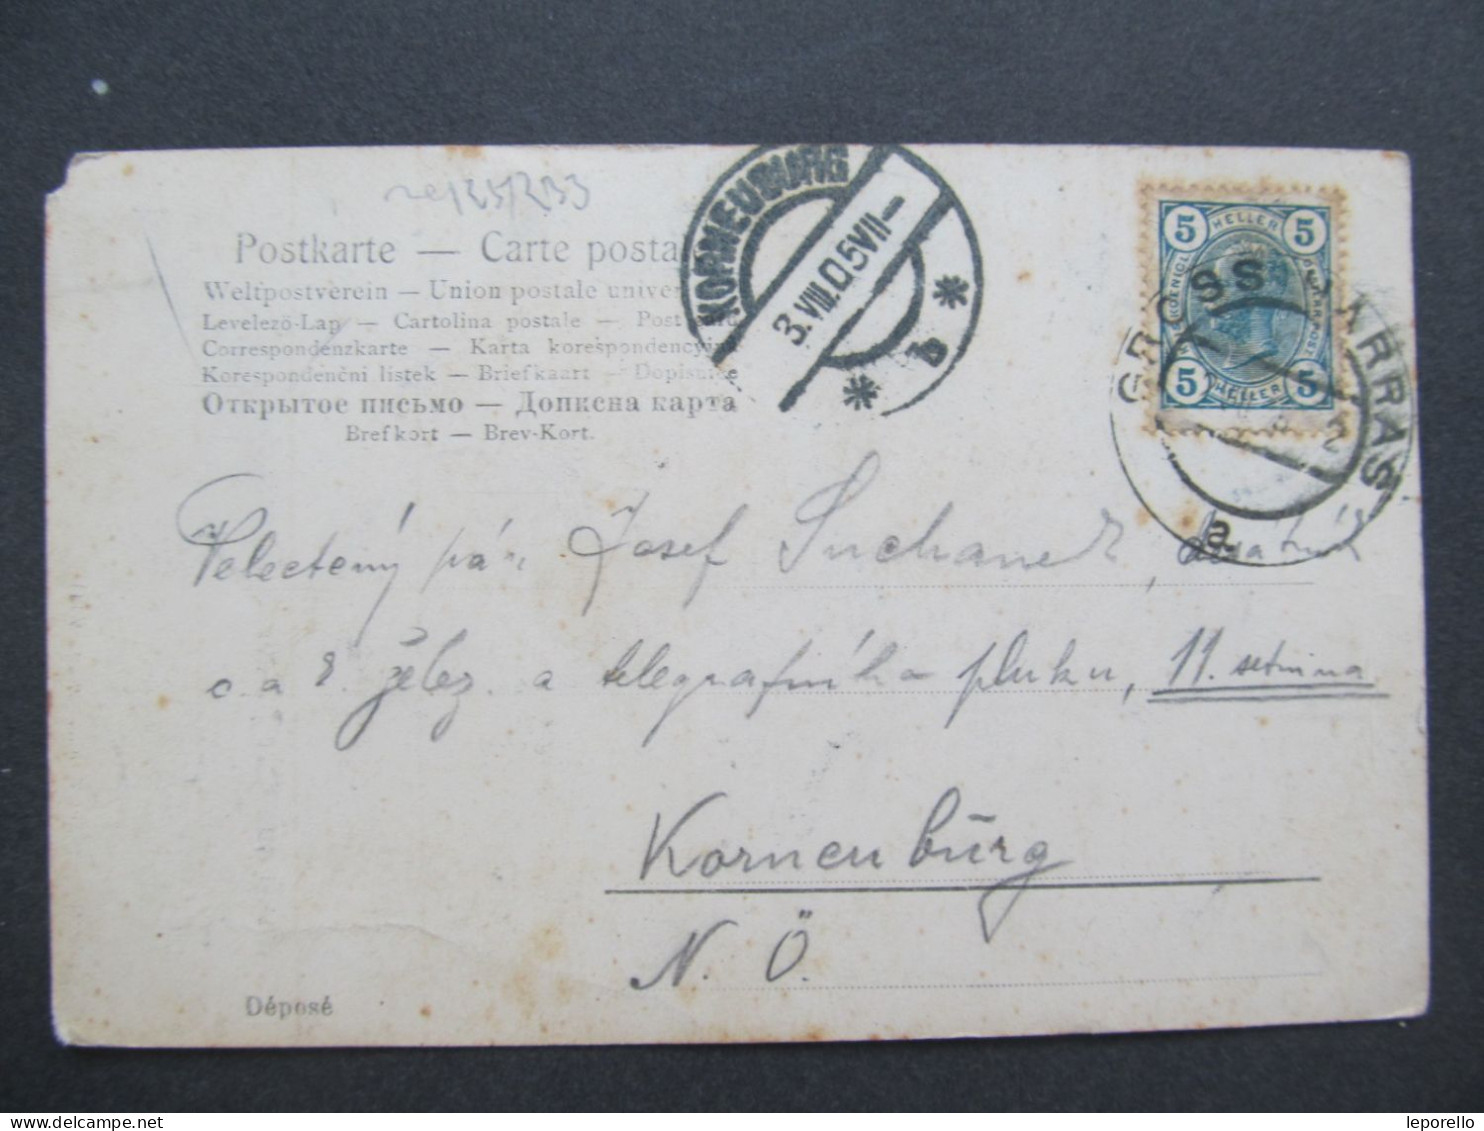 Postkarte — Carte posta
Weltpostverein — Union postale univer
Levelező-Lap — Cartolina postale — Post
Correspondenzkarte — Karta korespondencyjna
Korespondenční lístek — Briefkaart — Dopisnice
Открытое письмо — Дописна карта
Brefkort — Brev-Kort.
KORNEUBURG
3.VIII.05 VII—
b
5 HELLER 5
5 HELLER 5
GROSS KARRAS
2
a
Velectený pán Josef Suchanek,
c. a k. želez. a telegrafního pluku, 11. setnina
Korneuburg
N. Ö.
Déposé
leporello